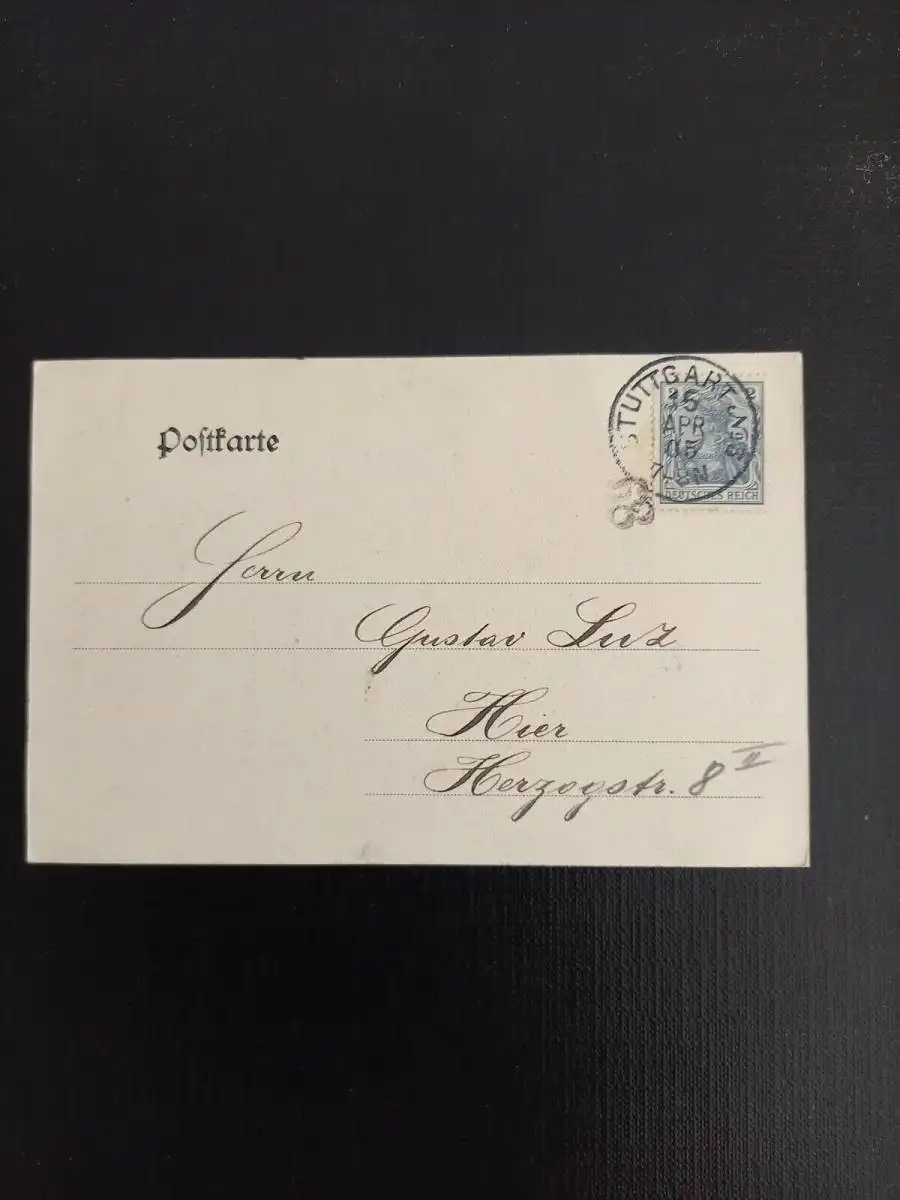 Postkarte
STUTTGART No 3
15
APR
05
7-8N
2 2
DEUTSCHES REICH
Herrn
Gustav Luz
Hier
Herzogstr. 8 II